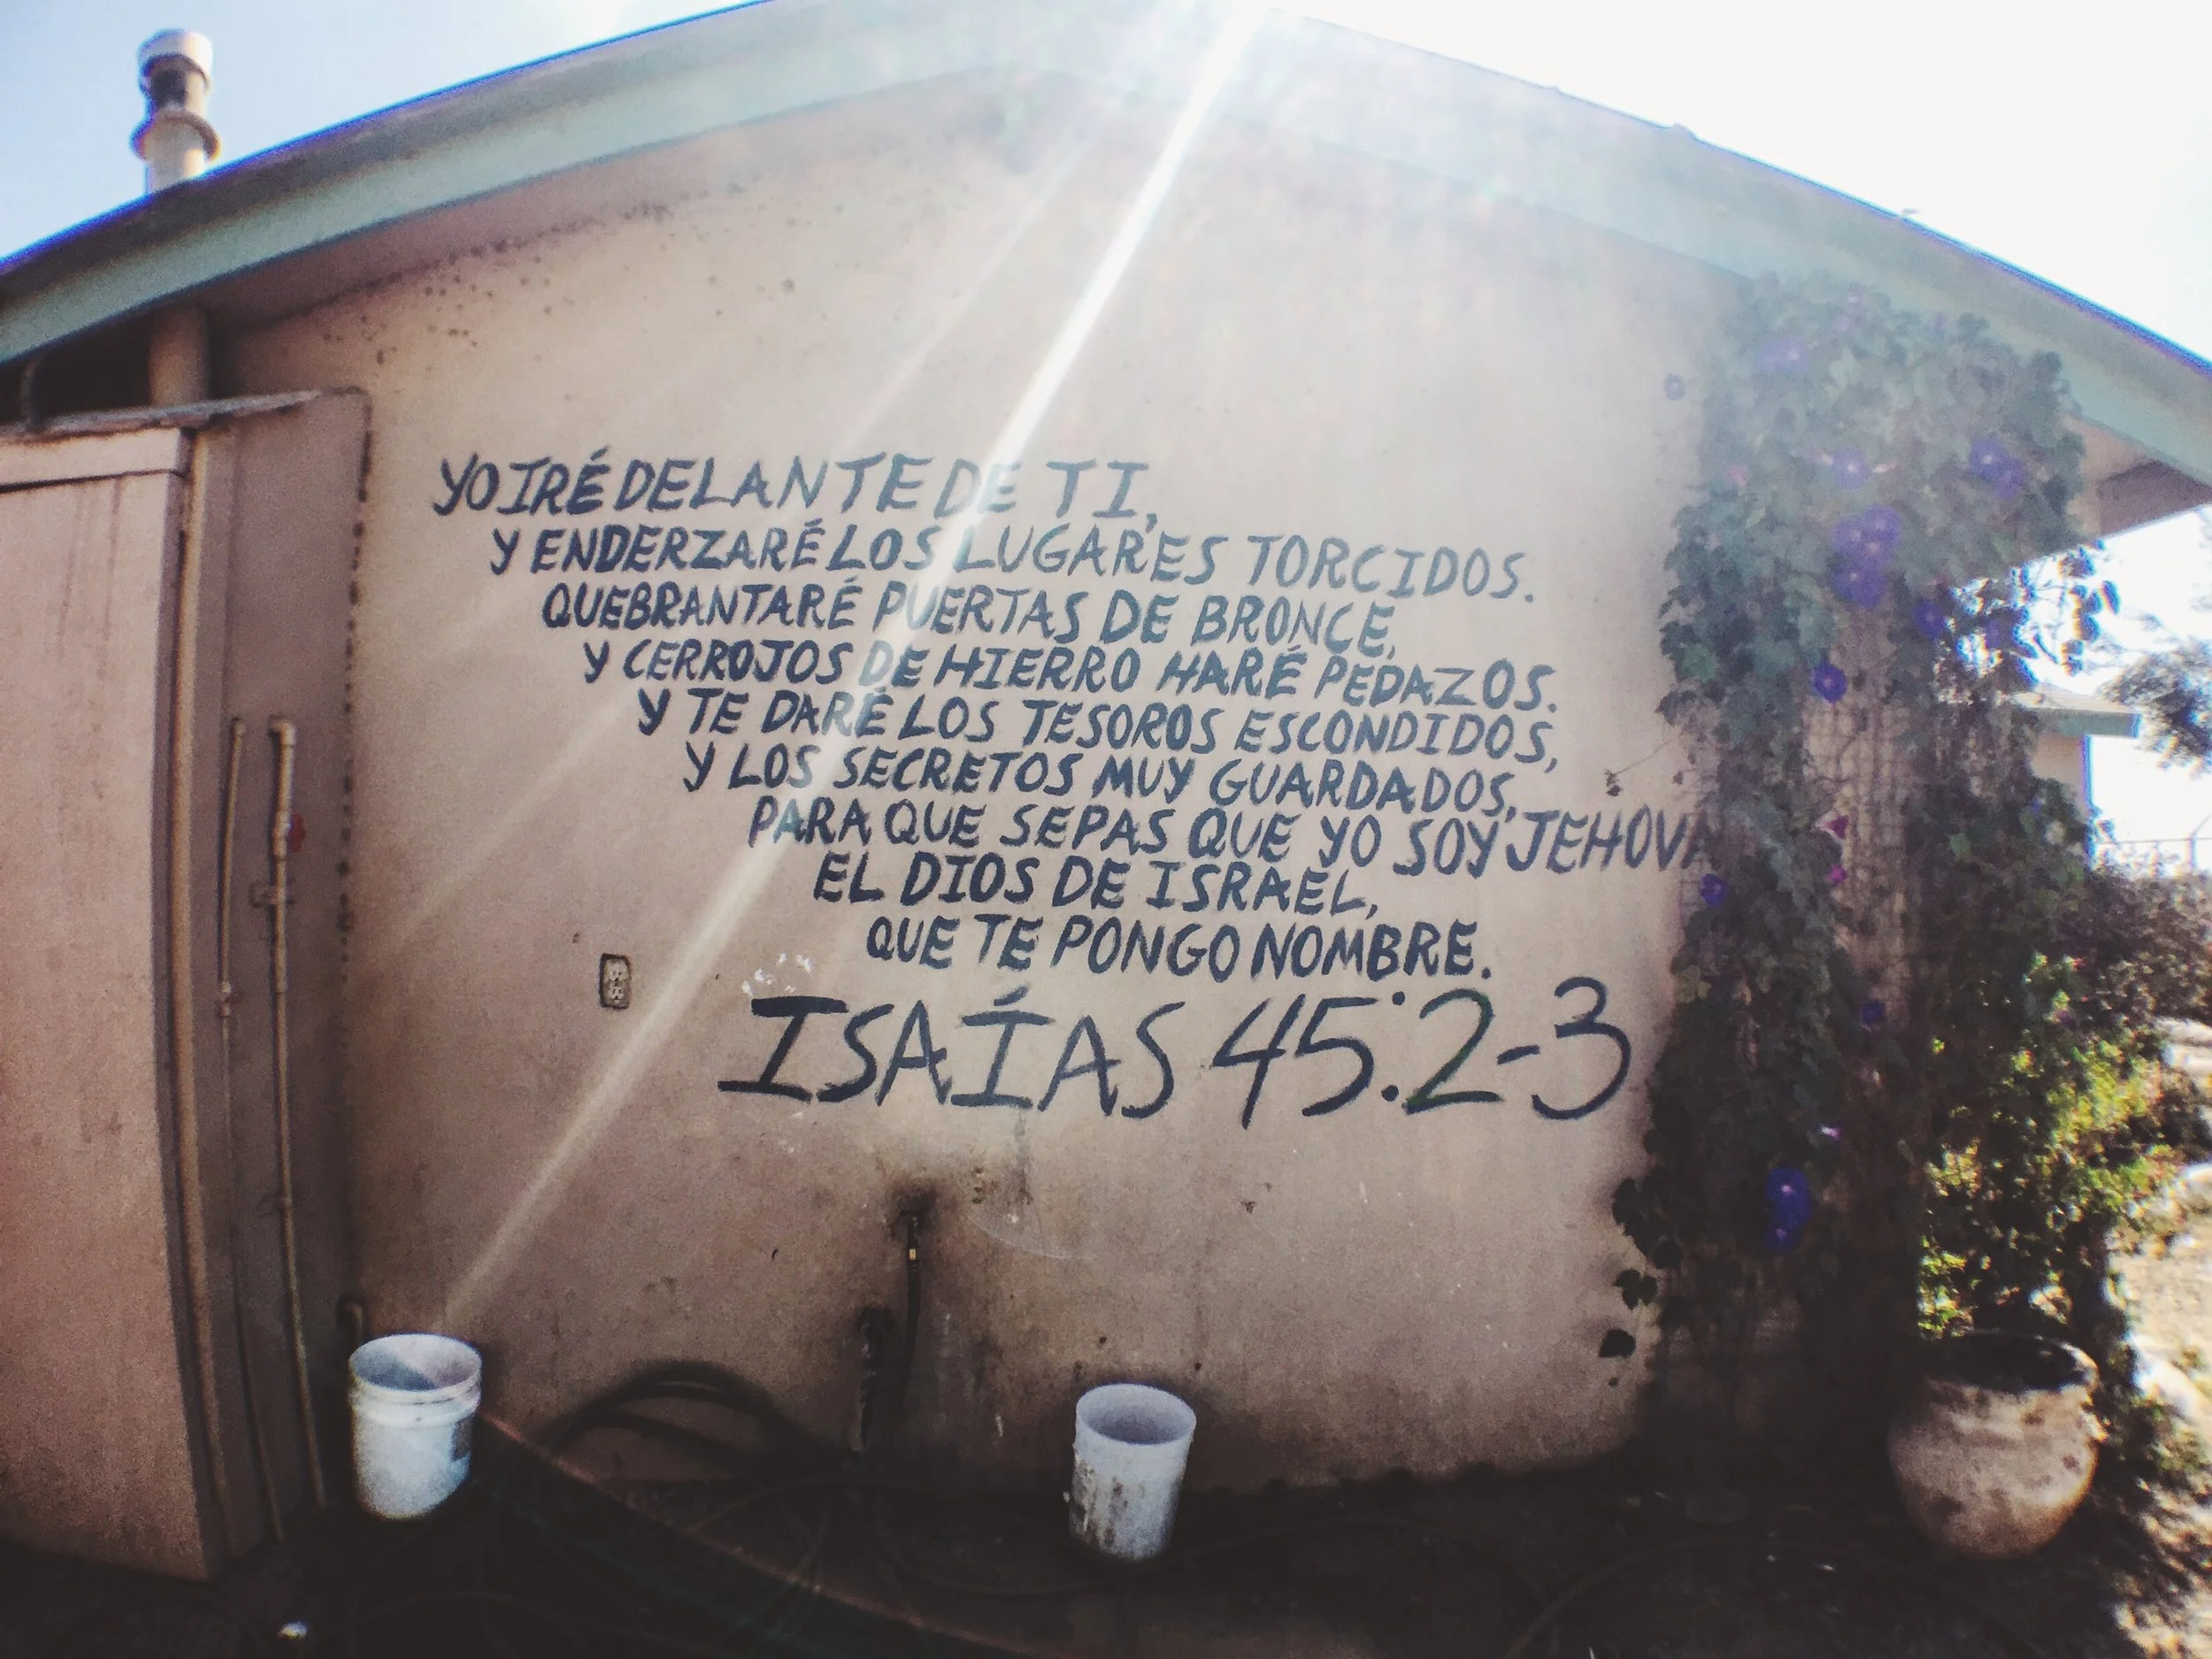 YO IRÉ DELANTE DE TI,
Y ENDERZARÉ LOS LUGARES TORCIDOS.
QUEBRANTARÉ PUERTAS DE BRONCE,
Y CERROJOS DE HIERRO HARÉ PEDAZOS.
Y TE DARÉ LOS TESOROS ESCONDIDOS,
Y LOS SECRETOS MUY GUARDADOS,
PARA QUE SEPAS QUE YO SOY JEHOVA
EL DIOS DE ISRAEL,
QUE TE PONGO NOMBRE.
ISAÍAS 45:2-3